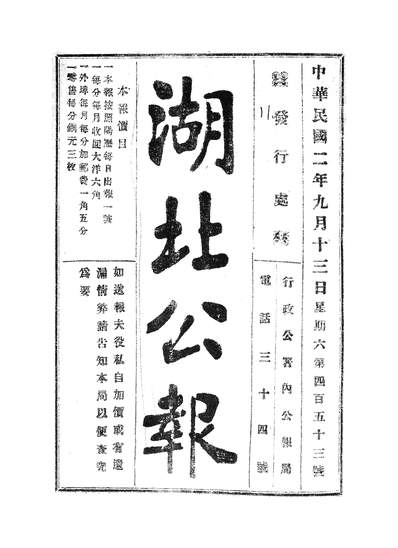 中華民國二年九月十三日星期六第四百五十三號
發行處
行政公署內公報局
電話三十四號
湖北公報
本報價目
一本報按照陽歷每日出報一號
一每分每月收囘大洋六角
一外埠每月每分加郵費一角五分
一零售每分銅元三枚
如送報夫役私自加價或有遺
漏情弊請告知本局以便查究
爲要